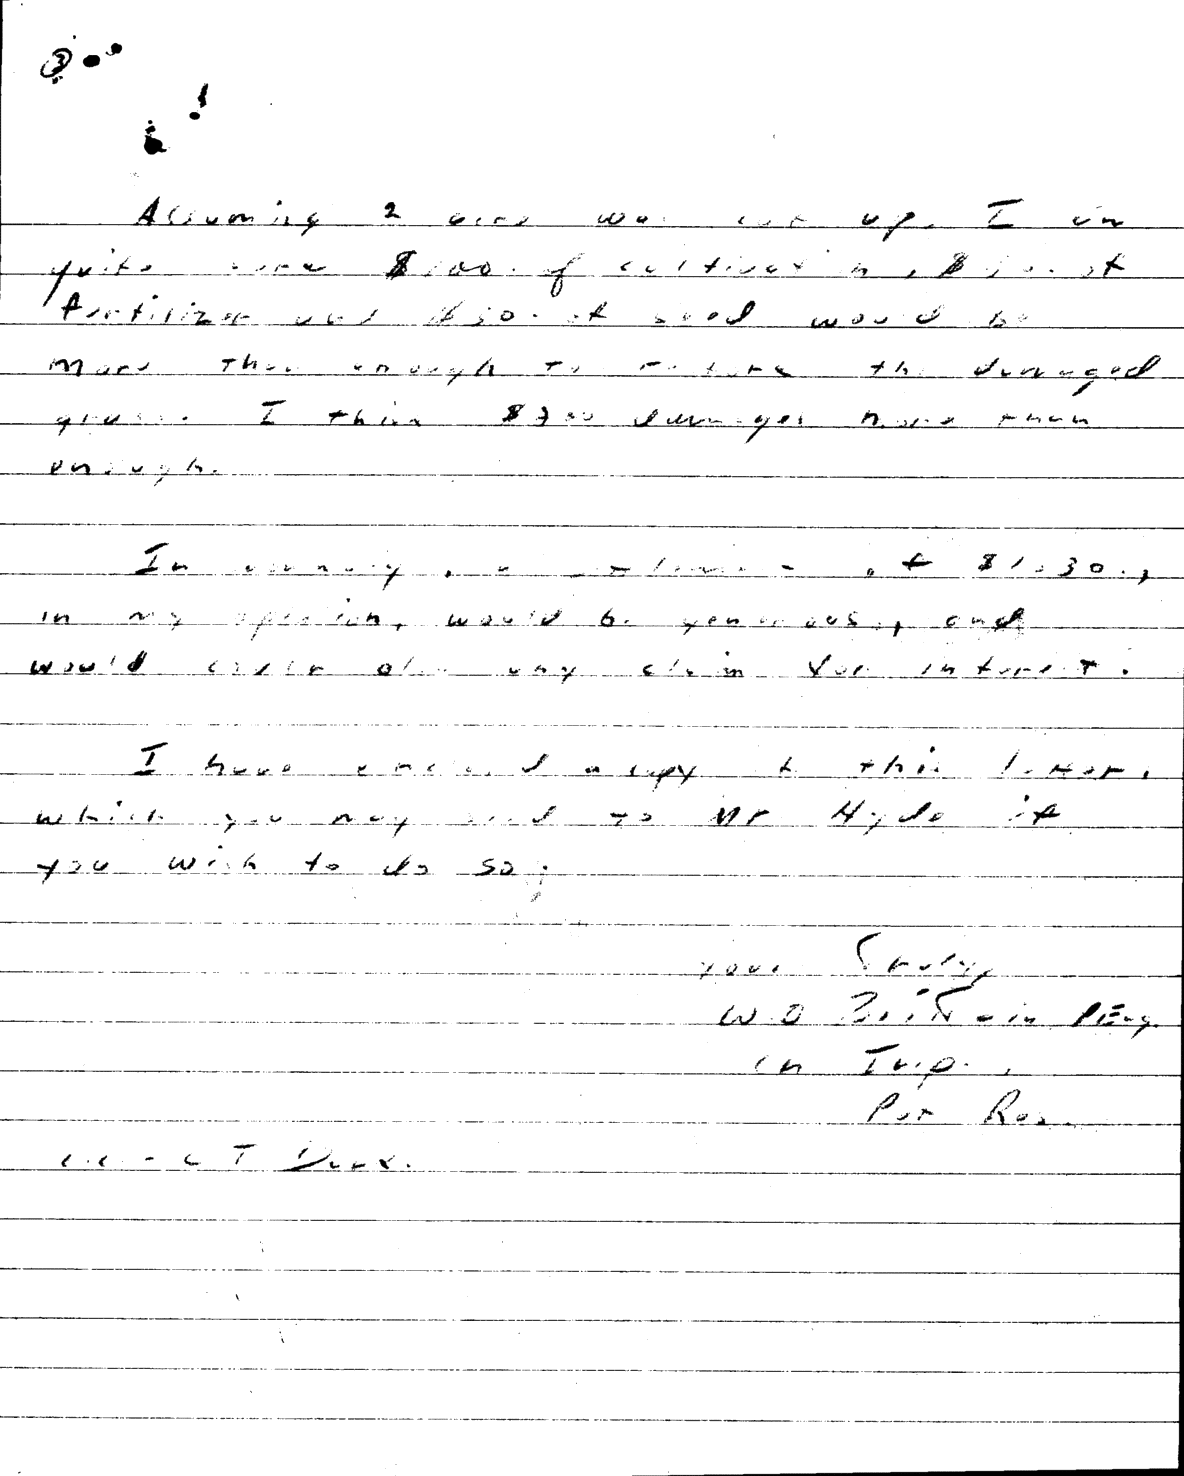 ③
Assuming 2 acres was cut up, I am
quite sure $100. of cultivation, of
fertilizer and $50. of seed would be
more than enough to restore the damaged
grass. I think $300 damages more than
enough.
In summary, a of $1.30.,
in my opinion, would be generous, and
would cover also any claim for interest.
I have enclosed a copy of this letter,
which you may send to Mr Hyde if
you wish to do so.
Yours Truly,
W D Brittain P.Eng.
in Trip.
Por Ros.
c.c. - C T